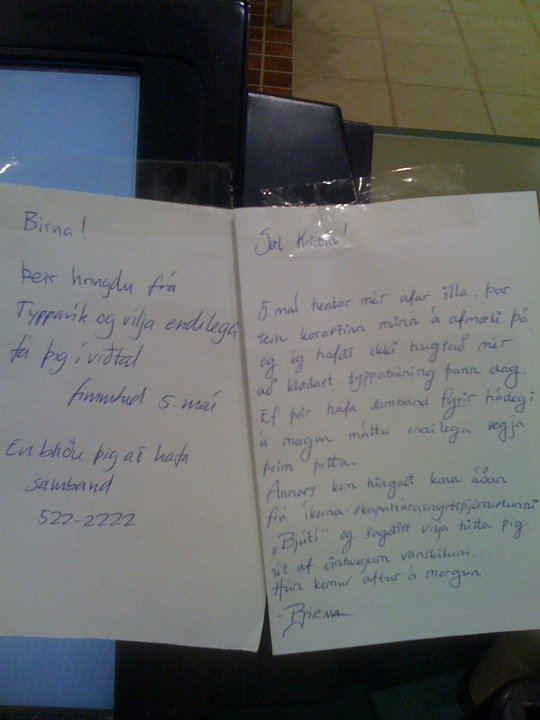 Birna!
Þeir hringdu frá
Typpavík og vilja endilega
fá þig í viðtal
fimmtud 5. maí
En báðu þig að hafa
samband
522-2222
Sæl Kristín!
5 maí hentar mér afar illa. Þar
sem kærastinn minn á afmæli þá
og ég hafði ekki hugsað mér
að klæðast typpabúning þann dag.
Ef þeir hafa samband fyrir hádegi
á morgun máttu endilega segja
þeim þetta.
Annars kom hingað kona áðan
frá íkorna-skapahárasnyrtiþjónustunni
„Bjútí" og sagðist vilja hitta þig
út af einhverjum vanskilum...
Hún kemur aftur á morgun.
- BIRNA